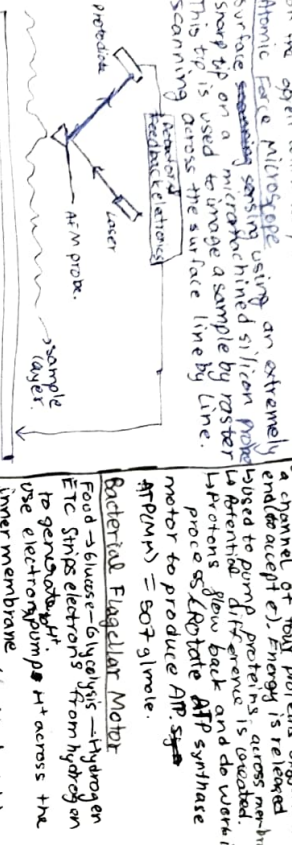 Atomic Force Microscope
surface sensing using an extremely
sharp tip on a micromachined silicon probe
This tip is used to image a sample by raster
scanning across the surface line by line.
feedback eletronics
photodiode
Laser
AFM probe.
→sample
layer.
a channel of four proteins
accept e). Energy is released
↳used to pump proteins across
↳Potential difference is created.
↳Protons flow back and do work
process (Rotate ATP synthase
motor to produce ATP.
ATP(Mm) = 507 g/mole.
Bacterial Flagellar Motor
Food → Glucose - Glycolysis → Hydrogen
ETC strips electrons from hydrogen
to generate H⁺.
use electron pumps H⁺ across the
inner membrane